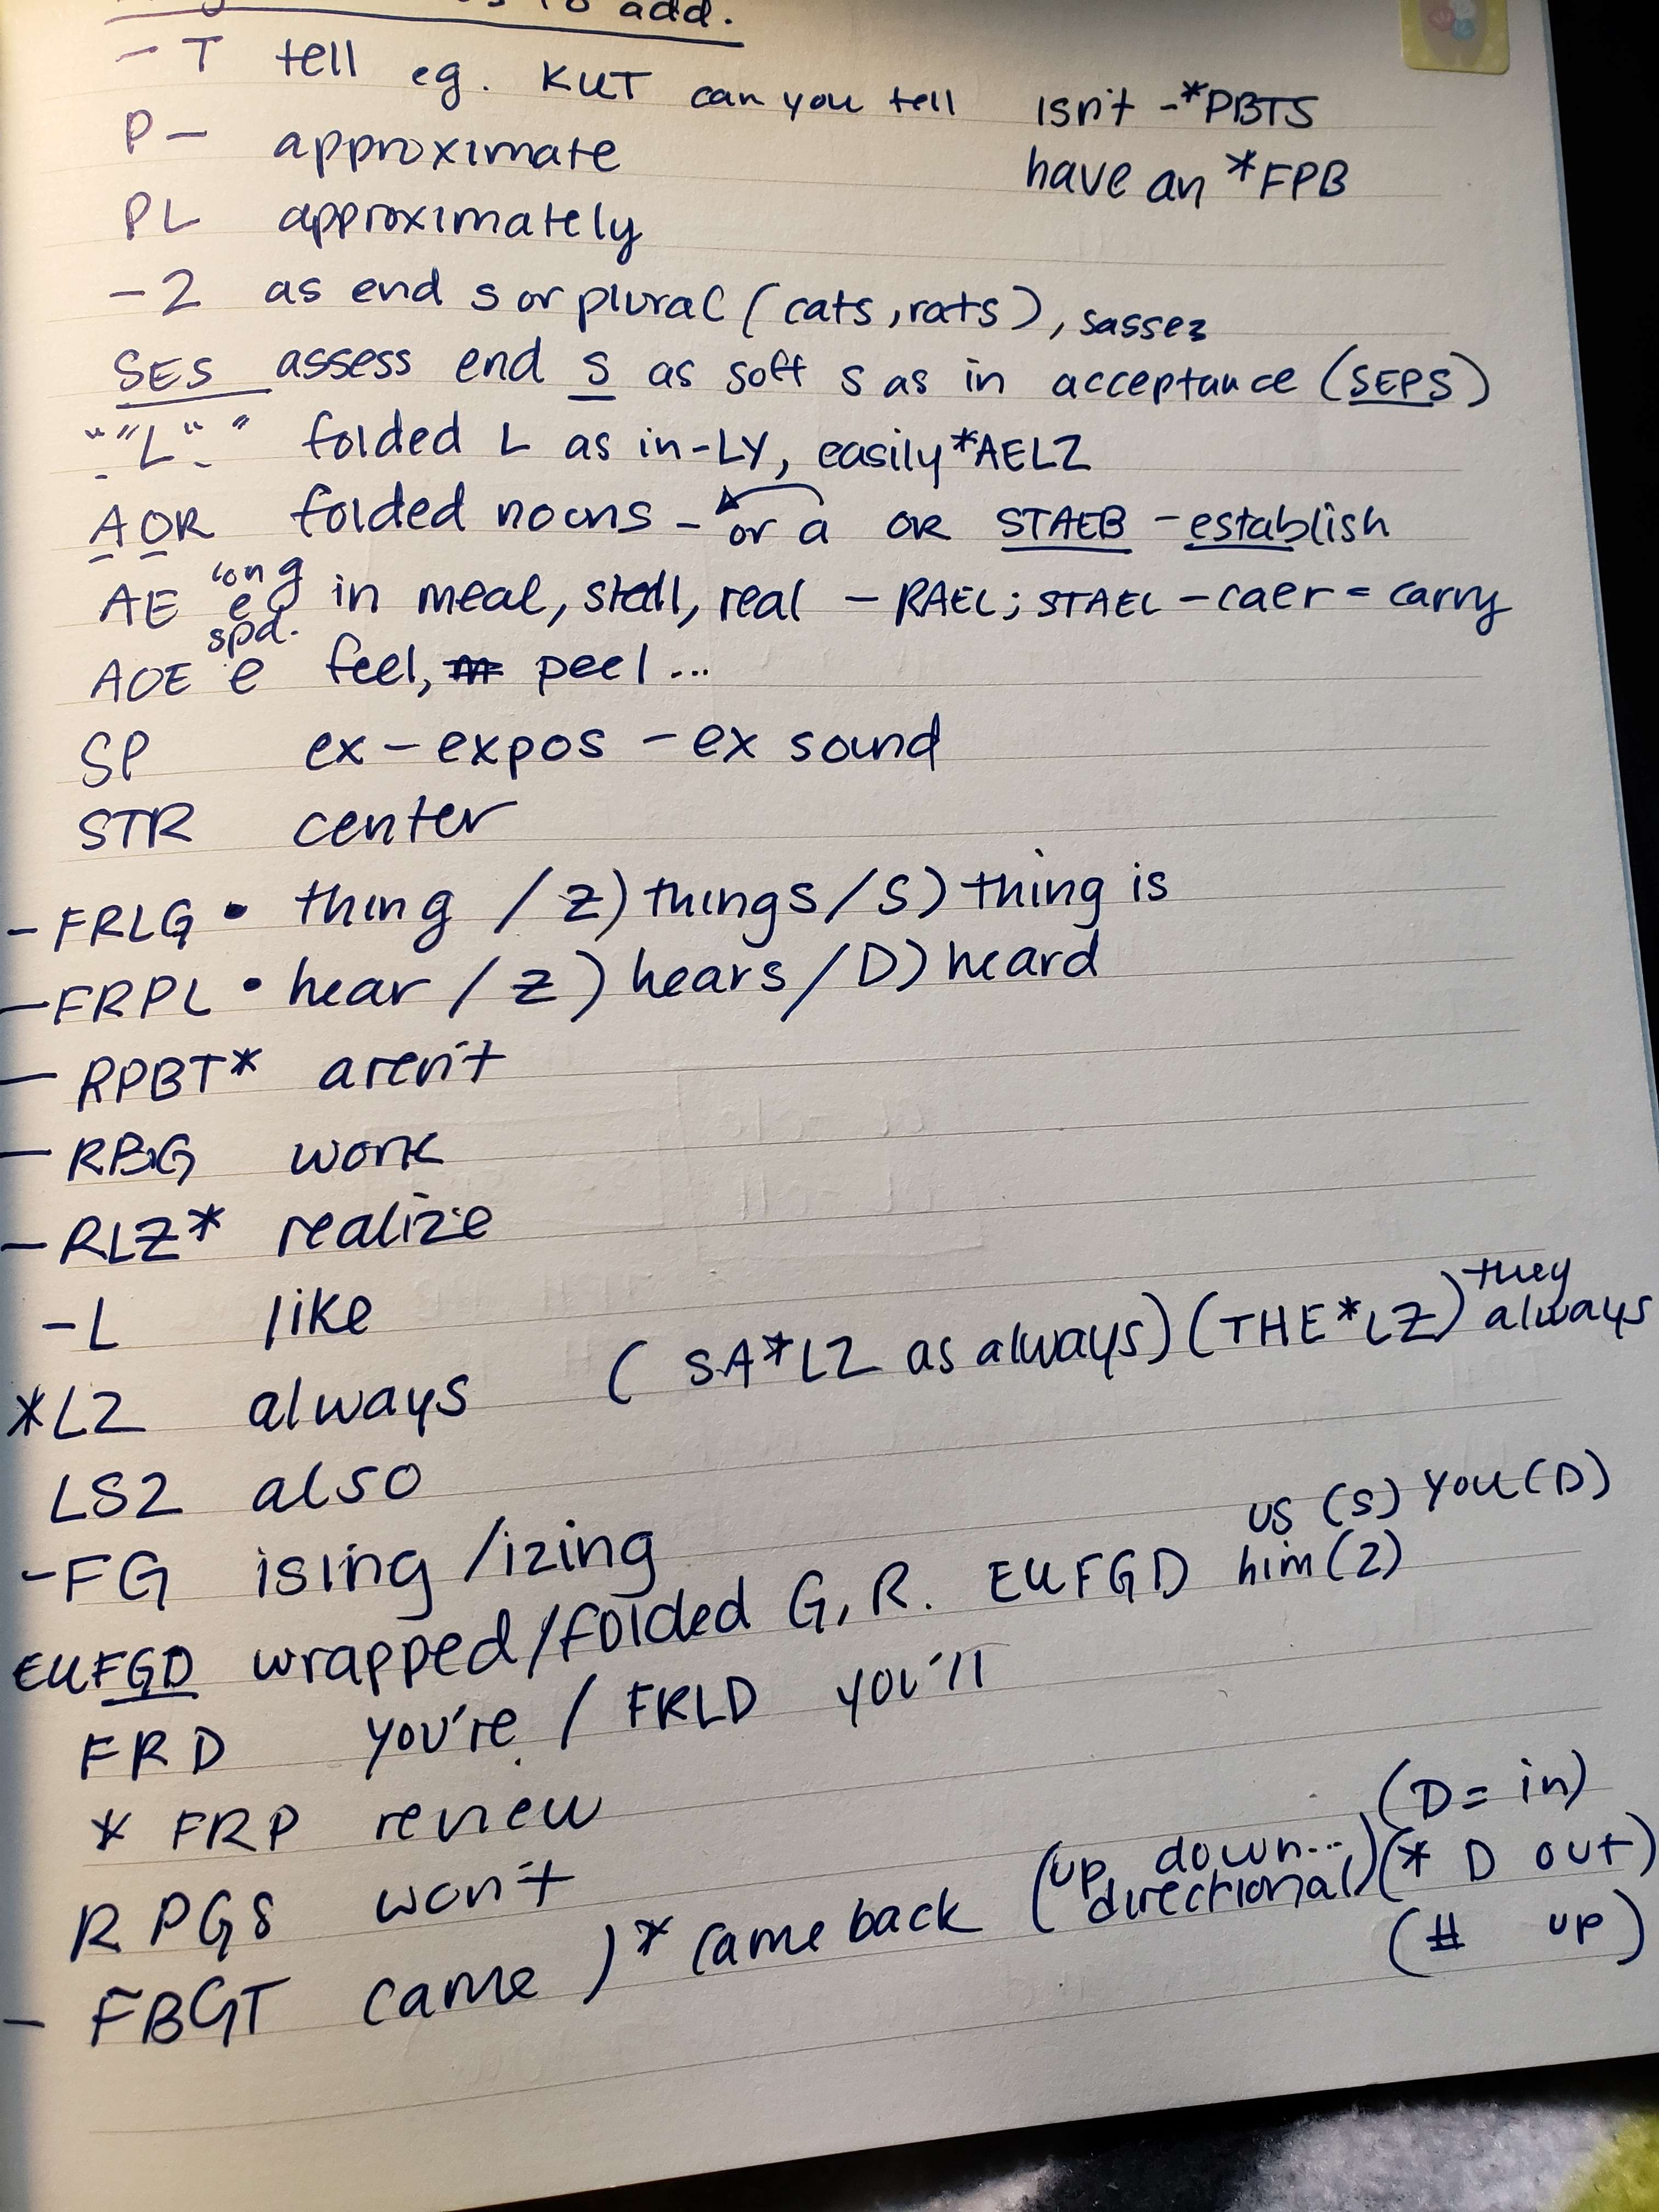 to add.
- T tell eg. KUT can you tell isn't -*PBTS
P- approximate have an *FPB
PL approximately
-Z as end s or plural (cats, rats), sassez
SES assess end s as soft s as in acceptance (SEPS)
"“L” " folded L as in -LY, easily *AELZ
AOR folded nouns - or a OR STAEB - establish
AE long e in meal, steal, real - RAEL; STAEL - caer = carry
spd.
AOE e feel, peel...
SP ex - expos - ex sound
STR center
- FRLG • thing / Z) things / S) thing is
- FRPL • hear / Z) hears / D) heard
- RPBT* aren't
- RBG work
- RLZ* realize
-L like
*LZ always (SA*LZ as always) (THE*LZ) they always
LSZ also
-FG ising /izing
EUFGD wrapped/folded G, R. EUFGD us (S) you (D) him (Z)
FRD you're / FRLD you'll
* FRP review
RPGS won't
- FBGT came )* came back (up, down... directional) (D = in) (* D out) (# up)